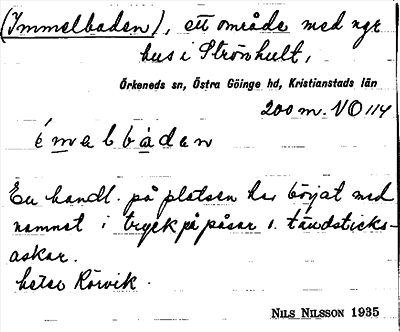 (Immelbaden), ett område med ngr
hus i Strönhult,
Örkeneds sn, Östra Göinge hd, Kristianstads län
200 m. VO 114
é m e l b b a d e n
En handl. på platsen har börjat med
namnet i tryck på påsar o. tändsticks-
askar.
heter Rörvik.
NILS NILSSON 1935